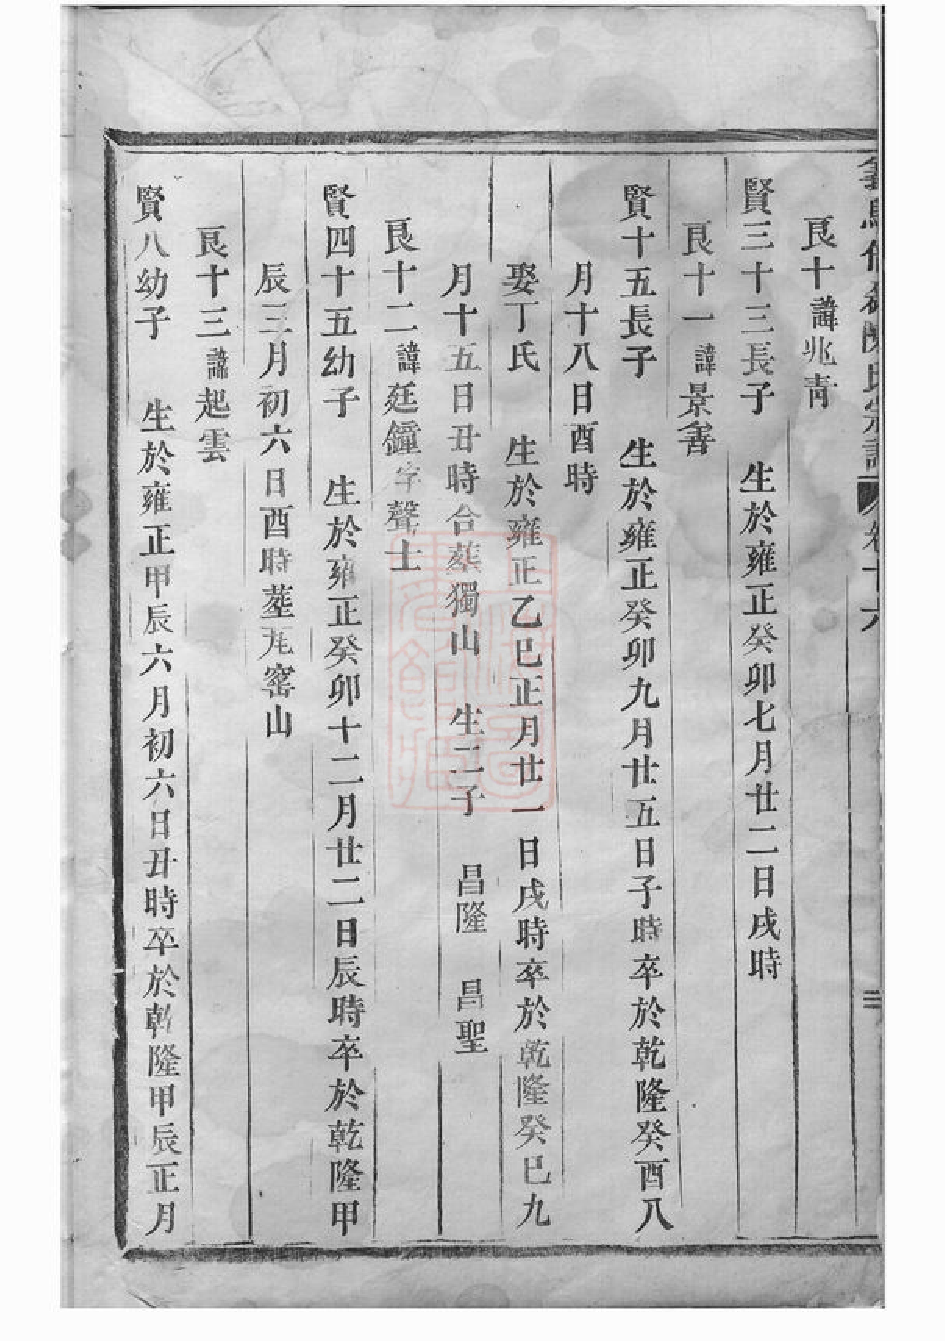 良十諱兆靑
賢三十三長子　生於雍正癸卯七月廿二日戌時
良十一諱景善
賢十五長子　生於雍正癸卯九月廿五日子時卒於乾隆癸酉八
月十八日酉時
娶丁氏　生於雍正乙巳正月廿一日戌時卒於乾隆癸巳九
月十五日丑時合塟獨山　生二子　昌隆　昌聖
良十二諱廷鐘字聲士
賢四十五幼子　生於雍正癸卯十二月廿二日辰時卒於乾隆甲
辰三月初六日酉時塟瓦窰山
良十三諱起雲
賢八幼子　生於雍正甲辰六月初六日丑時卒於乾隆甲辰正月